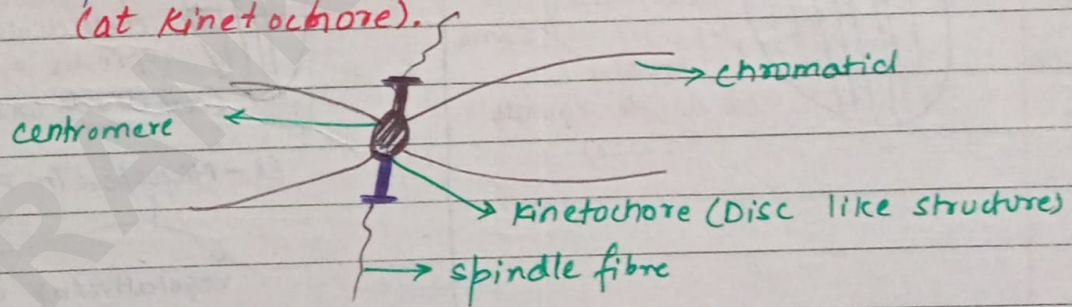 (at Kinetochore).
chromatid
centromere
Kinetochore (Disc like structure)
spindle fibre
RAM